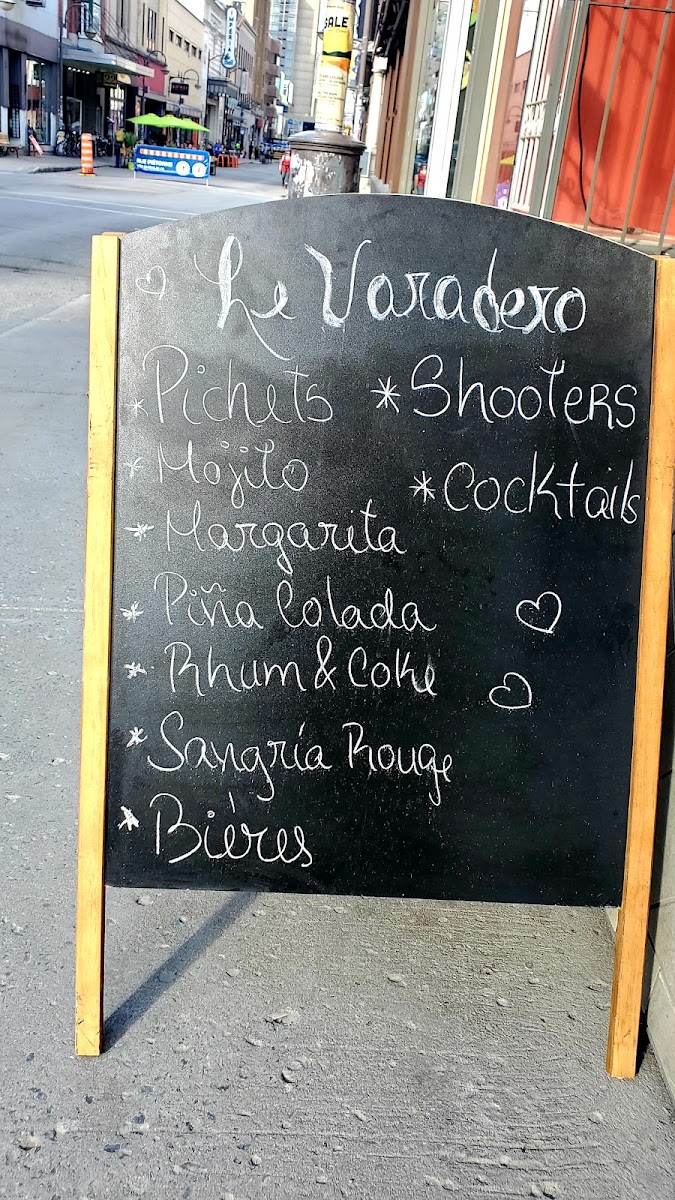 SALE
Le Varadero
* Pichets
* Mojito
* Margarita
* Piña Colada
* Rhum & Coke
* Sangría Rouge
* Bières
* Shooters
* Cocktails